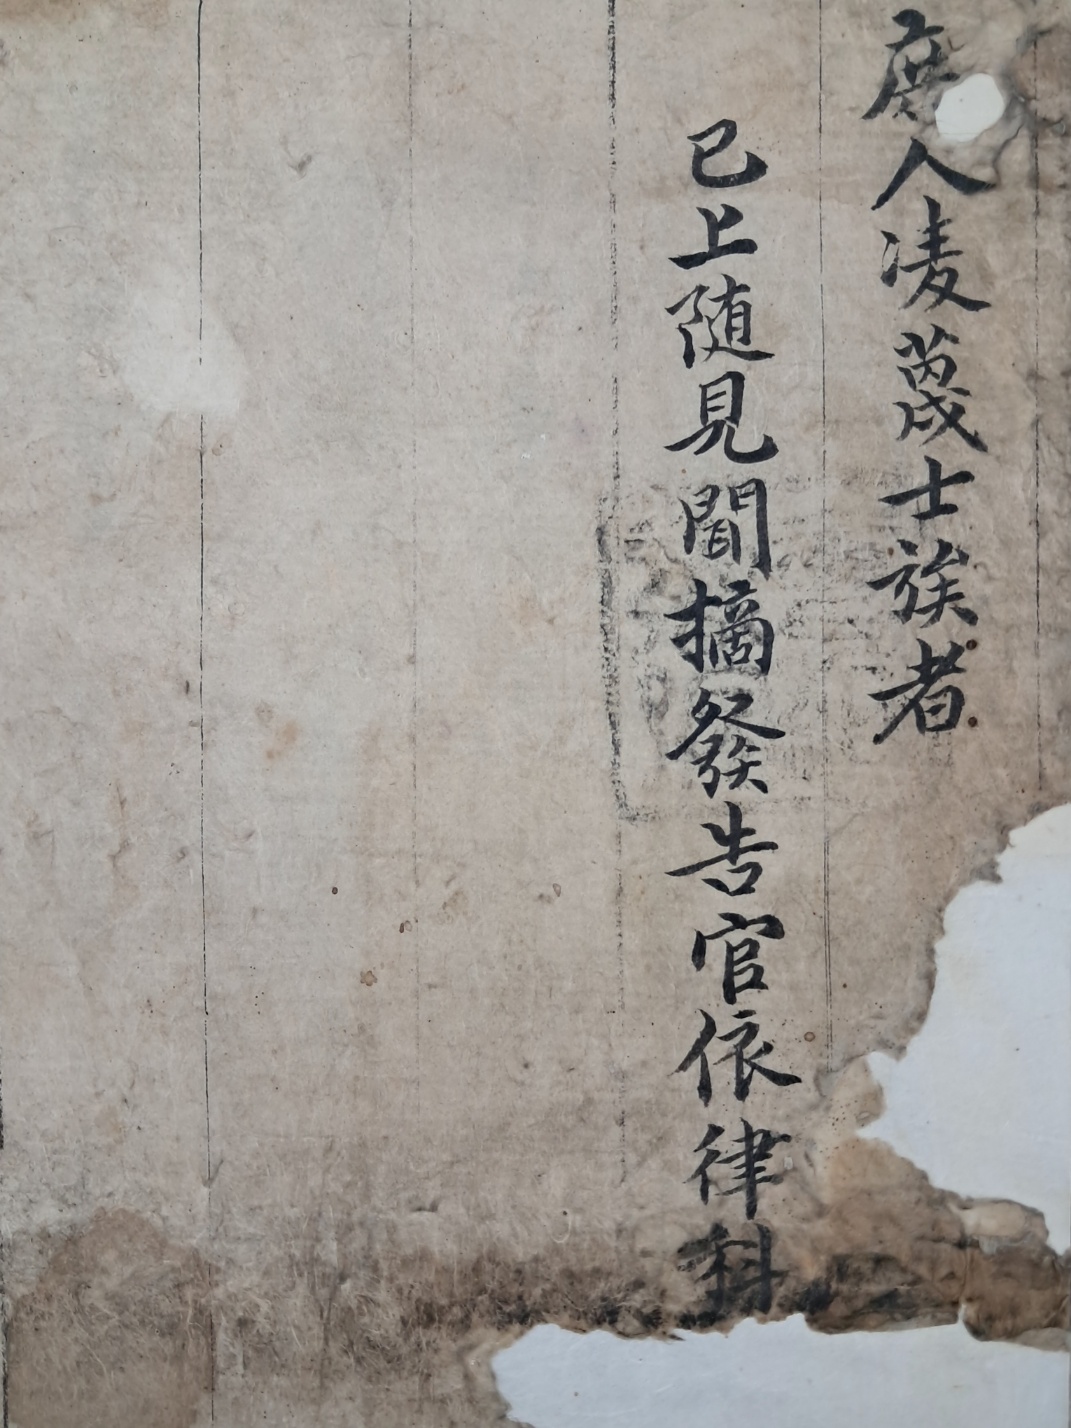 庶人凌蔑士族者
已上随見聞摘發告官依律科